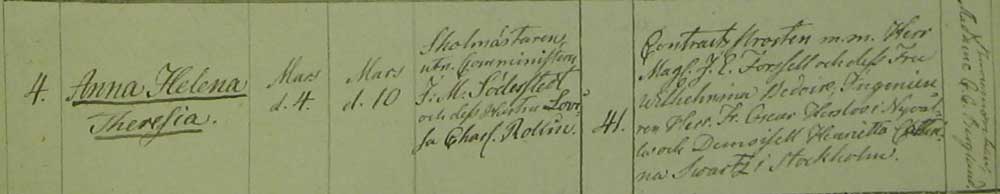 4.
Anna Helena
Theresia.
Mars
d. 4.
Mars
d. 10
Skolmästaren
utn. Comministern
J. M. Söderstedt
och dess Hustru Lovi-
sa Charl. Rollin.
41.
Contracts Prosten m.m. Herr
Mag. J. E. Forssell och dess Fru
Wilhelmina Bedoire, Ingenieu
ren Herr Fr. Oscar
och Demoiselle Henrietta
na Swartz i Stockholm.
Madame